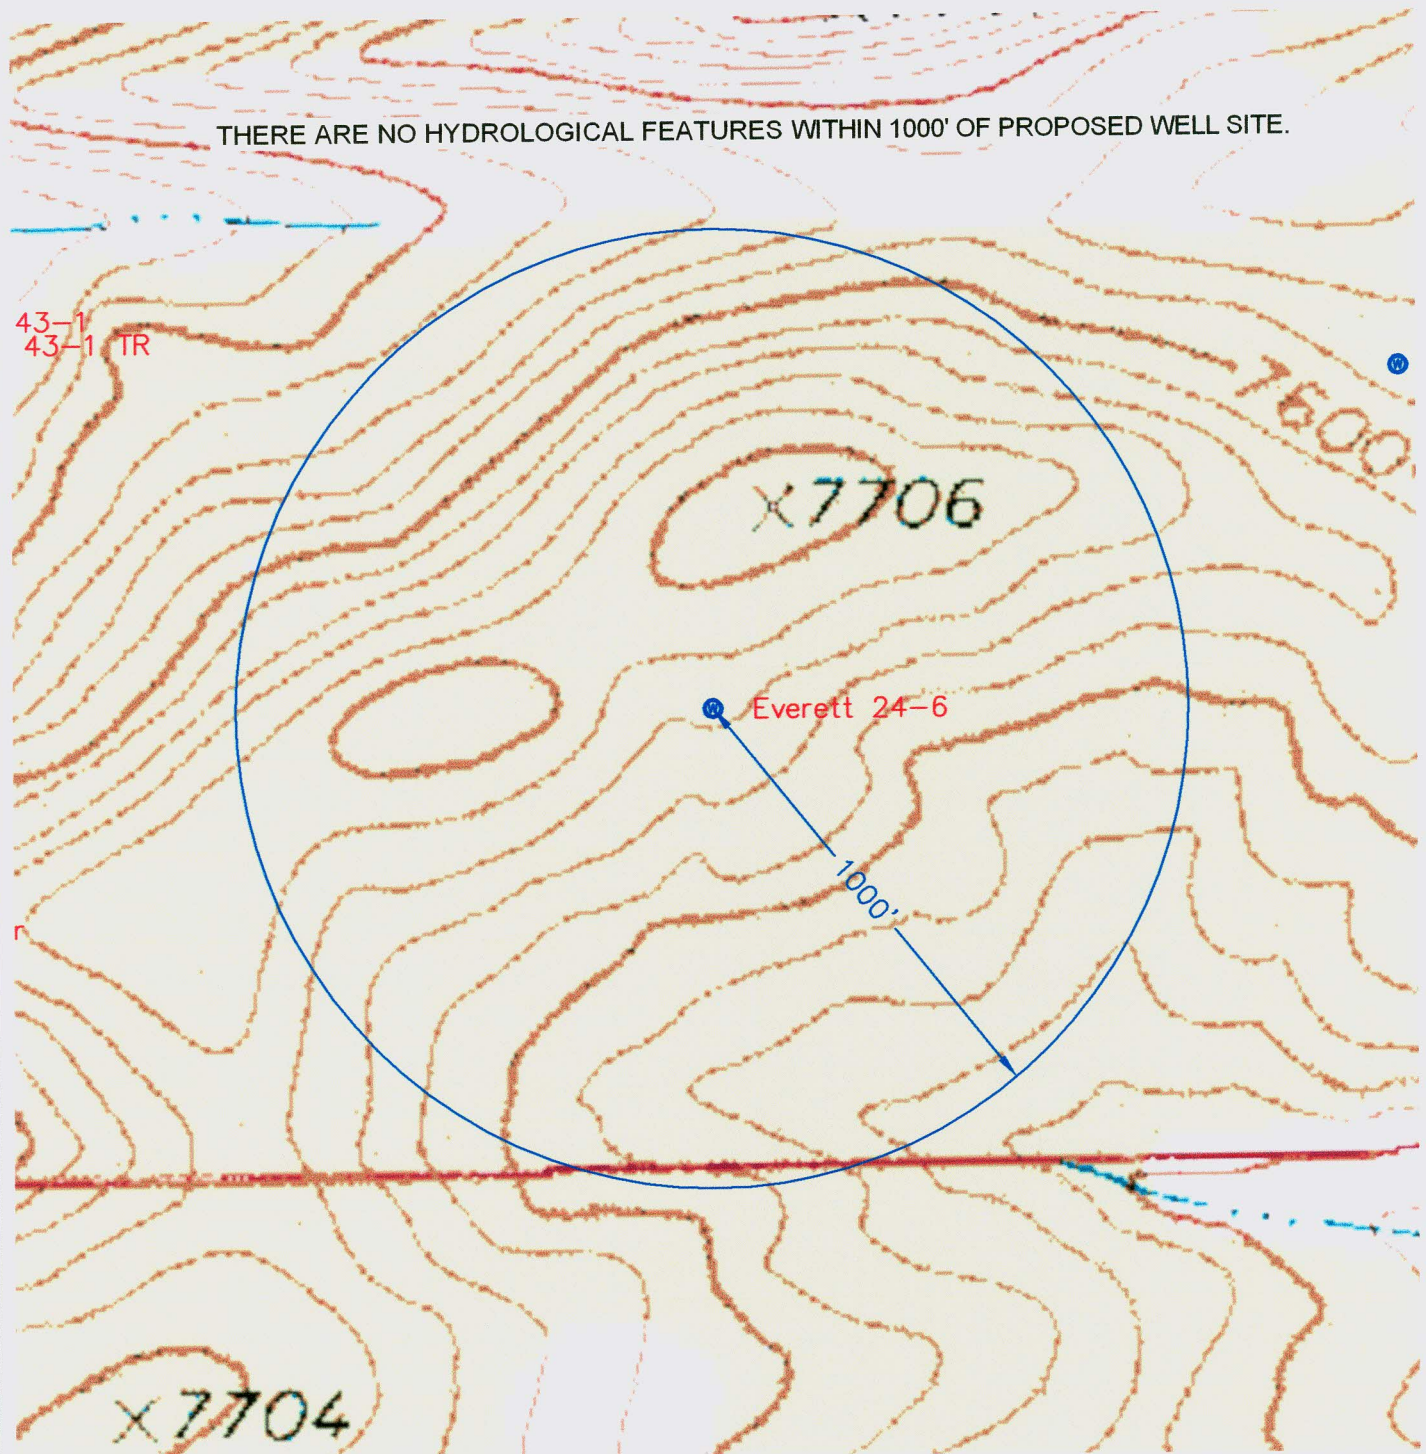 THERE ARE NO HYDROLOGICAL FEATURES WITHIN 1000' OF PROPOSED WELL SITE.
43-1
43-1 TR
W
7600
X7706
W
Everett 24-6
1000'
r
X7704